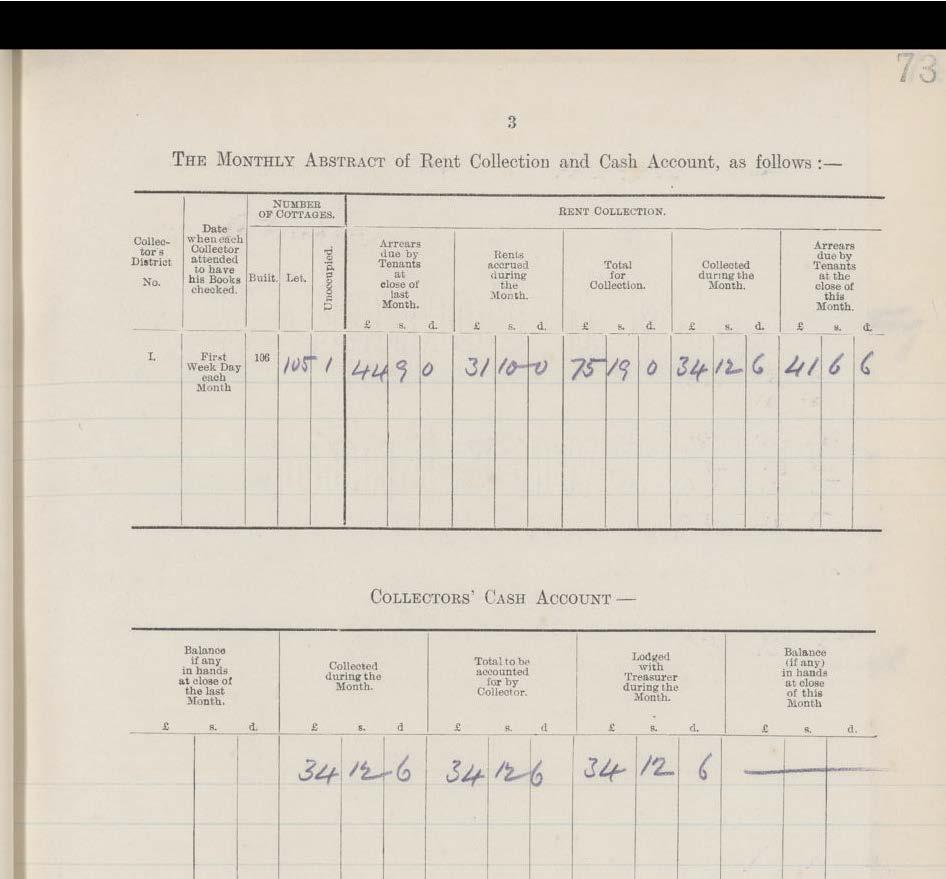 73
3
THE MONTHLY ABSTRACT of Rent Collection and Cash Account, as follows :—
NUMBER
OF COTTAGES.
RENT COLLECTION.
Collec-
tor's
District
No.
Date
when each
Collector
attended
to have
his Books
checked.
Built.
Let.
Unoccupied.
Arrears
due by
Tenants
at
close of
last
Month.
Rents
accrued
during
the
Month.
Total
for
Collection.
Collected
during the
Month.
Arrears
due by
Tenants
at the
close of
this
Month.
£ s. d. £ s. d. £ s. d. £ s. d. £ s. d.
I.
First
Week Day
each
Month
106 105 1 44 9 0 31 10 0 75 19 0 34 12 6 41 6 6
COLLECTORS' CASH ACCOUNT —
Balance
if any
in hands
at close of
the last
Month.
Collected
during the
Month.
Total to be
accounted
for by
Collector.
Lodged
with
Treasurer
during the
Month.
Balance
(if any)
in hands
at close
of this
Month
£ s. d. £ s. d £ s. d £ s. d. £ s. d.
34 12 6 34 12 6 34 12 6 —